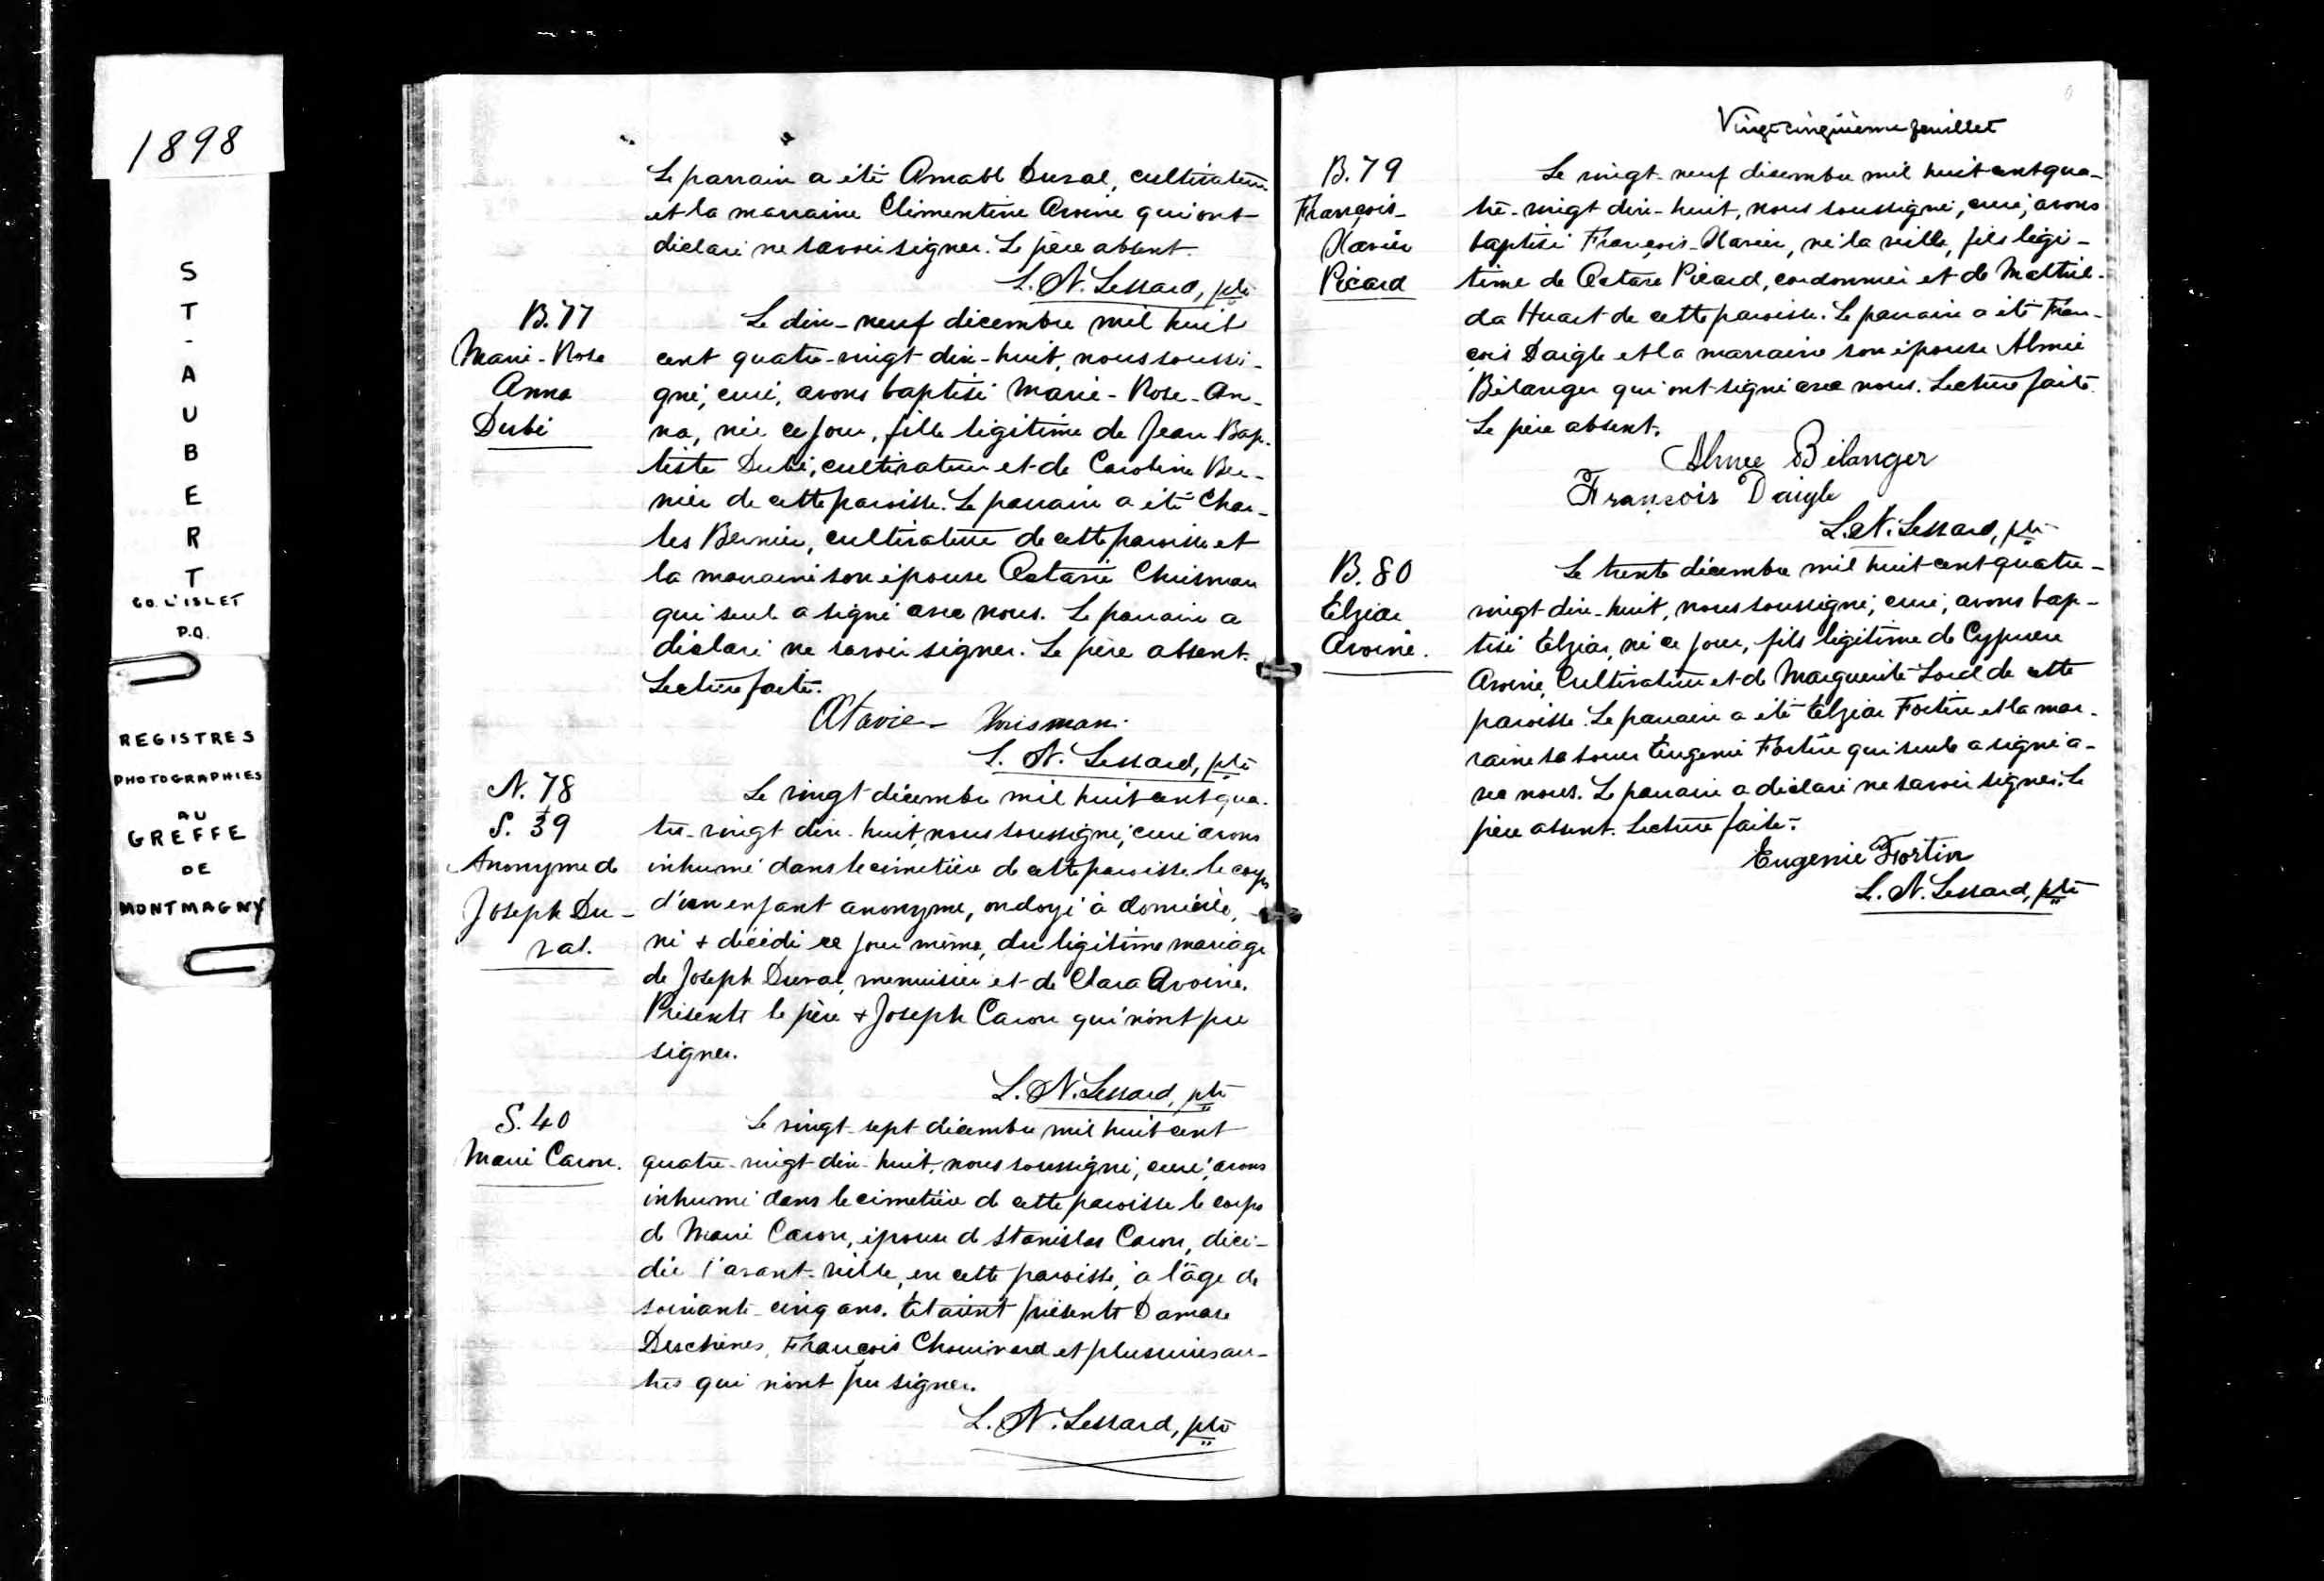 1898
ST-AUBERT
CO. L'ISLET
P.Q.
REGISTRES
PHOTOGRAPHIES
AU
GREFFE
DE
MONTMAGNY
Le parrain a été Amabl Duval, cultivateur
et la marraine Clémentine Avoine qui ont
déclaré ne savoir signer. Le père absent.
L. N. Lessard, ptre
B. 77
Marie-Rose
Anna
Dubé
Le dix-neuf décembre mil huit
cent quatre-vingt dix-huit, nous soussi-
gné, curé, avons baptisé Marie-Rose-An-
na, née ce jour, fille légitime de Jean Bap-
tiste Dubé, cultivateur et de Caroline Ber-
nier de cette paroisse. Le parrain a été Char-
les Bernier, cultivateur de cette paroisse et
la marraine son épouse Octavie Chrisman
qui seule a signé avec nous. Le parrain a
déclaré ne savoir signer. Le père absent.
Lecture faite.
Otavie
L. N. Lessard, ptre
N. 78
S. 39
Anonyme de
Joseph Du-
val.
Le vingt décembre mil huit cent qua-
tre-vingt dix-huit, nous soussigné, curé avons
inhumé dans le cimetière de cette paroisse le corps
d'un enfant anonyme, ondoyé à domicile,
né + décédé ce jour même, du légitime mariage
de Joseph Duval, menuisier et de Clara Avoine.
Présents le père + Joseph Caron qui n'ont pu
signer.
L. N. Lessard, ptre
S. 40
Marie Caron.
Le vingt-sept décembre mil huit cent
quatre-vingt dix-huit, nous soussigné, curé, avons
inhumé dans le cimetière de cette paroisse le corps
de Marie Caron, épouse de Stanislas Caron, décé-
dée l'avant-veille, en cette paroisse, à l'âge de
soixante-cinq ans. Etaient présents Damase
Deschènes, François Chouinard et plusieurs au-
tres qui n'ont pu signer.
L. N. Lessard, ptre
Vingt-cinquième feuillet
B. 79
François-
Xavier
Picard
Le vingt-neuf décembre mil huit cent qua-
tre-vingt dix-huit, nous soussigné, curé, avons
baptisé François-Xavier, né la veille, fils légi-
time de Octave Picard, cordonnier et de Mathil-
da Huart de cette paroisse. Le parrain a été Fran-
çois Daigle et la marraine son épouse Almée
Bélanger qui ont signé avec nous. Lecture faite.
Le père absent.
Almée Bélanger
François Daigle
L. N. Lessard, ptre
B. 80
Elzéar
Avoine.
Le trente décembre mil huit cent quatre-
vingt dix-huit, nous soussigné, curé, avons bap-
tisé Elzéar, né ce jour, fils légitime de Cyprien
Avoine, cultivateur et de Marguerite Lord de cette
paroisse. Le parrain a été Elzéar Fortin et la mar-
raine sa soeur Eugénie Fortin qui seule a signé a-
vec nous. Le parrain a déclaré ne savoir signer. Le
père absent. Lecture faite.
Eugenie Fortin
L. N. Lessard, ptre